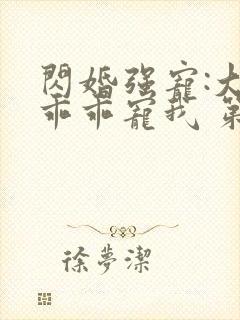 閃婚强寵:大
乖乖寵我 第
徐夢潔